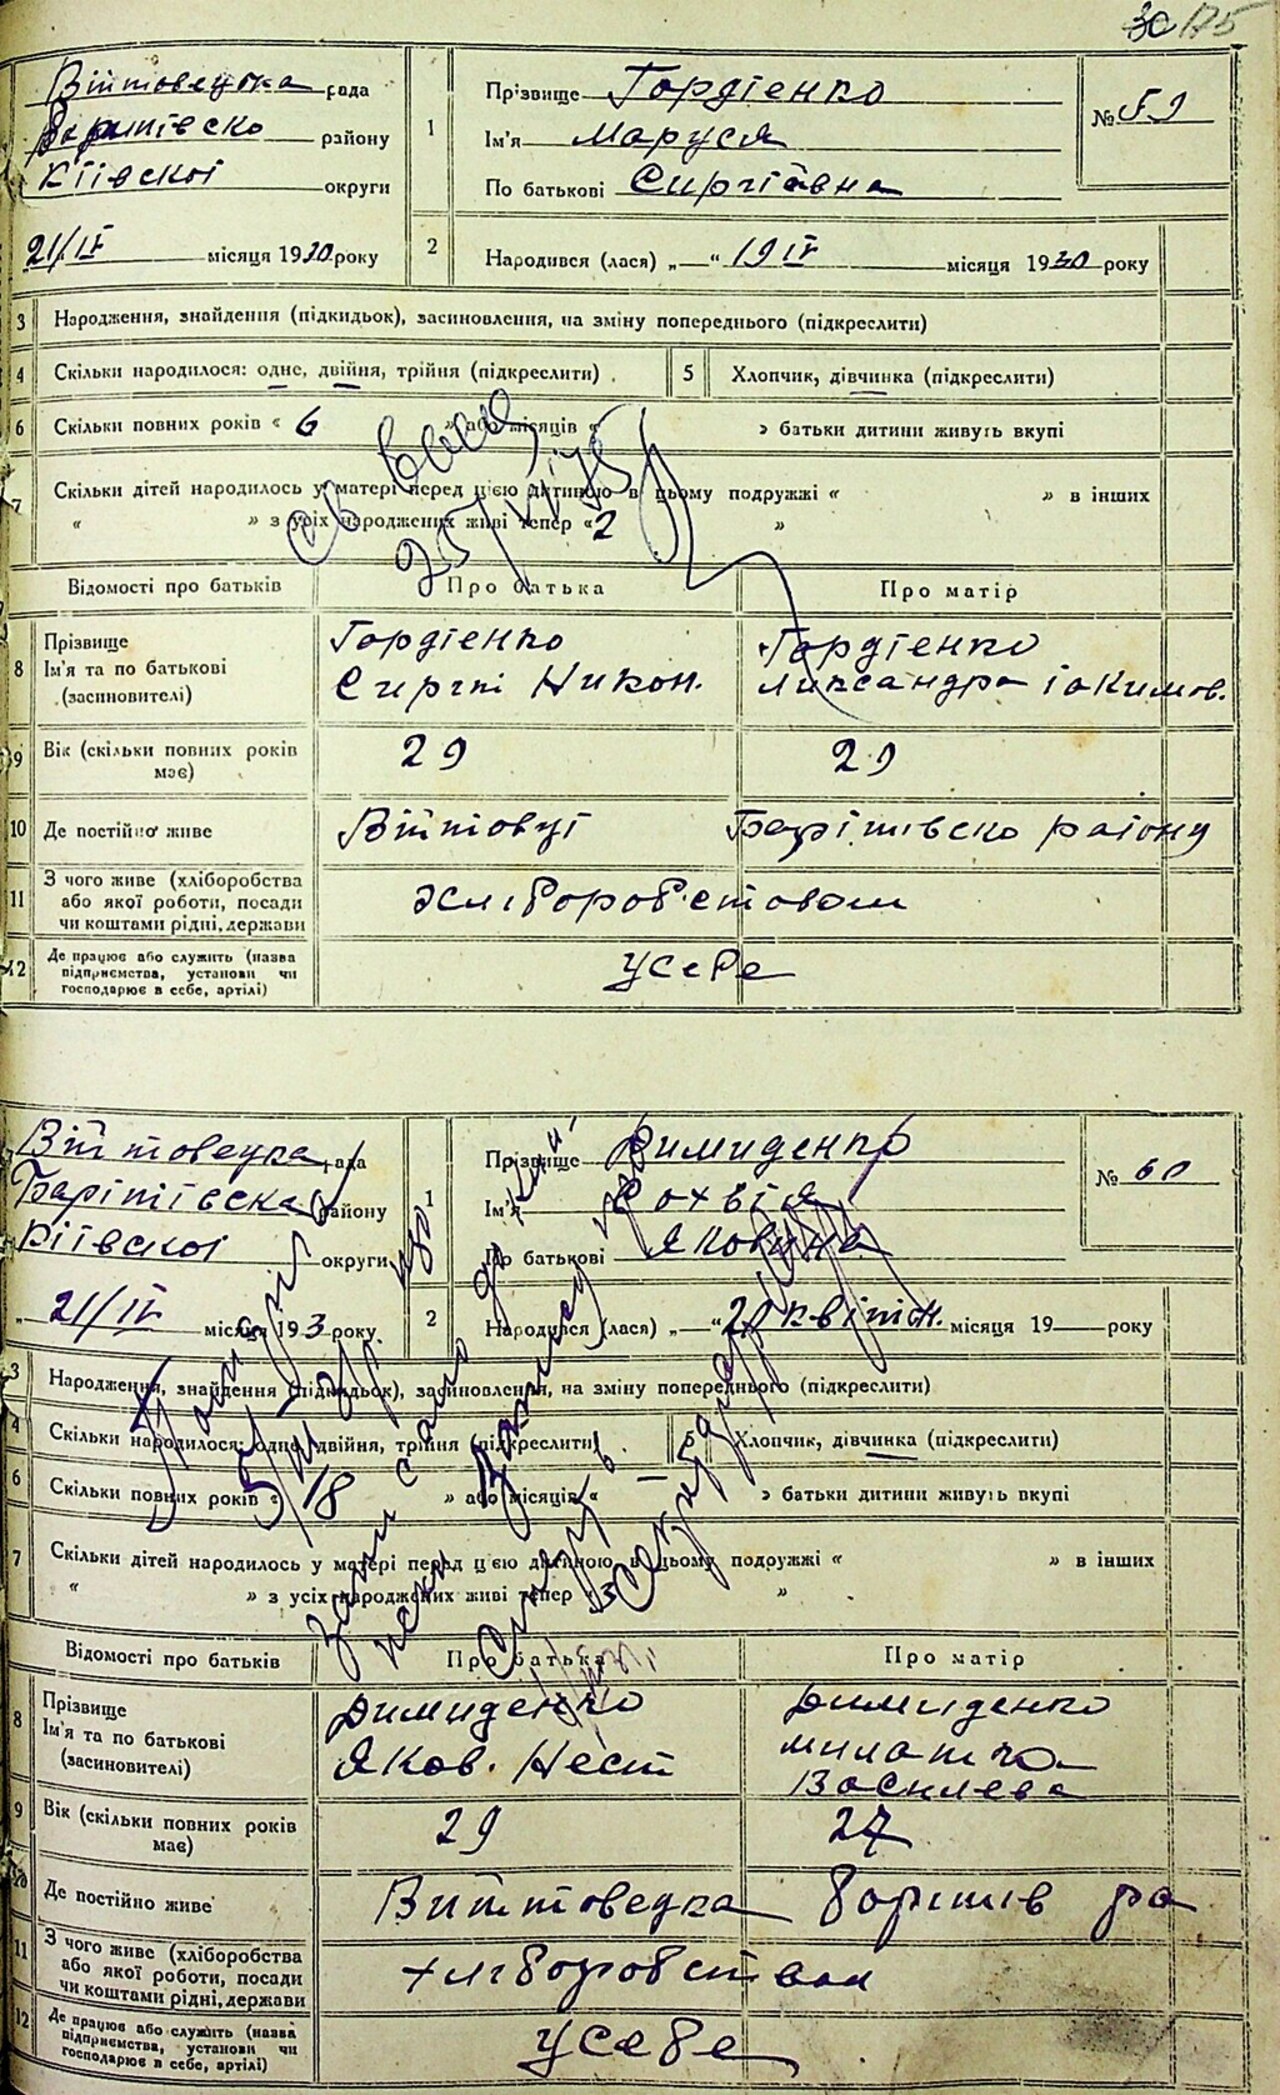 175
Війтовецька рада
Баришівско району
Київскоі округи
21/IV місяця 1930 року
1
Прізвище Гордіенко
Ім'я Маруся
По батькові Сиргіевна
№ 59
2
Народився (лася) „ “ 19 IV місяця 1930 року
3 Народження, знайдення (підкидьок), засиновлення, на зміну попереднього (підкреслити)
4 Скільки народилося: одне, двійня, трійня (підкреслити)
5 Хлопчик, дівчинка (підкреслити)
6 Скільки повних років « 6 » або місяців « » батьки дитини живуть вкупі
7 Скільки дітей народилось у матері перед цією дитиною в цьому подружжі « » в інших
« » з усіх народжених живі тепер « 2 »
Відомості про батьків Про батька Про матір
8 Прізвище Ім'я та по батькові (засиновителі)
Гордіенко
Сиргіі Никон.
Гордіенко
Александра Іакимов.
9 Вік (скільки повних років має) 29 29
10 Де постійно живе Війтовці Барішівско раіону
11 З чого живе (хліборобства або якої роботи, посади чи коштами рідні, держави
хліборобством
12 Де працює або служить (назва підприємства, установи чи господарює в себе, артілі)
усебе
Війтовецка рада
Барішівска району
Кіівскоі округи
„ 21/IV місяця 193 року
1
Прізвище Димиденко
Ім'я Сохвія
По батькові Яковина
№ 60
2
Народився (лася) „ “ 20 квітн. місяця 19 року
3 Народження, знайдення (підкидьок), засиновлення, на зміну попереднього (підкреслити)
4 Скільки народилося: одне, двійня, трійня (підкреслити)
5 Хлопчик, дівчинка (підкреслити)
6 Скільки повних років « » або місяців « » батьки дитини живуть вкупі
7 Скільки дітей народилось у матері перед цією дитиною в цьому подружжі « » в інших
« » з усіх народжених живі тепер « 3 »
Відомості про батьків Про батька Про матір
8 Прізвище Ім'я та по батькові (засиновителі)
Димиденко
Яков. Нест
Димиденко
Василева
9 Вік (скільки повних років має) 29 27
10 Де постійно живе Вийтовецка Боришів ра
11 З чого живе (хліборобства або якої роботи, посади чи коштами рідні, держави
хліборобством
12 Де працює або служить (назва підприємства, установи чи господарює в себе, артілі)
усебе